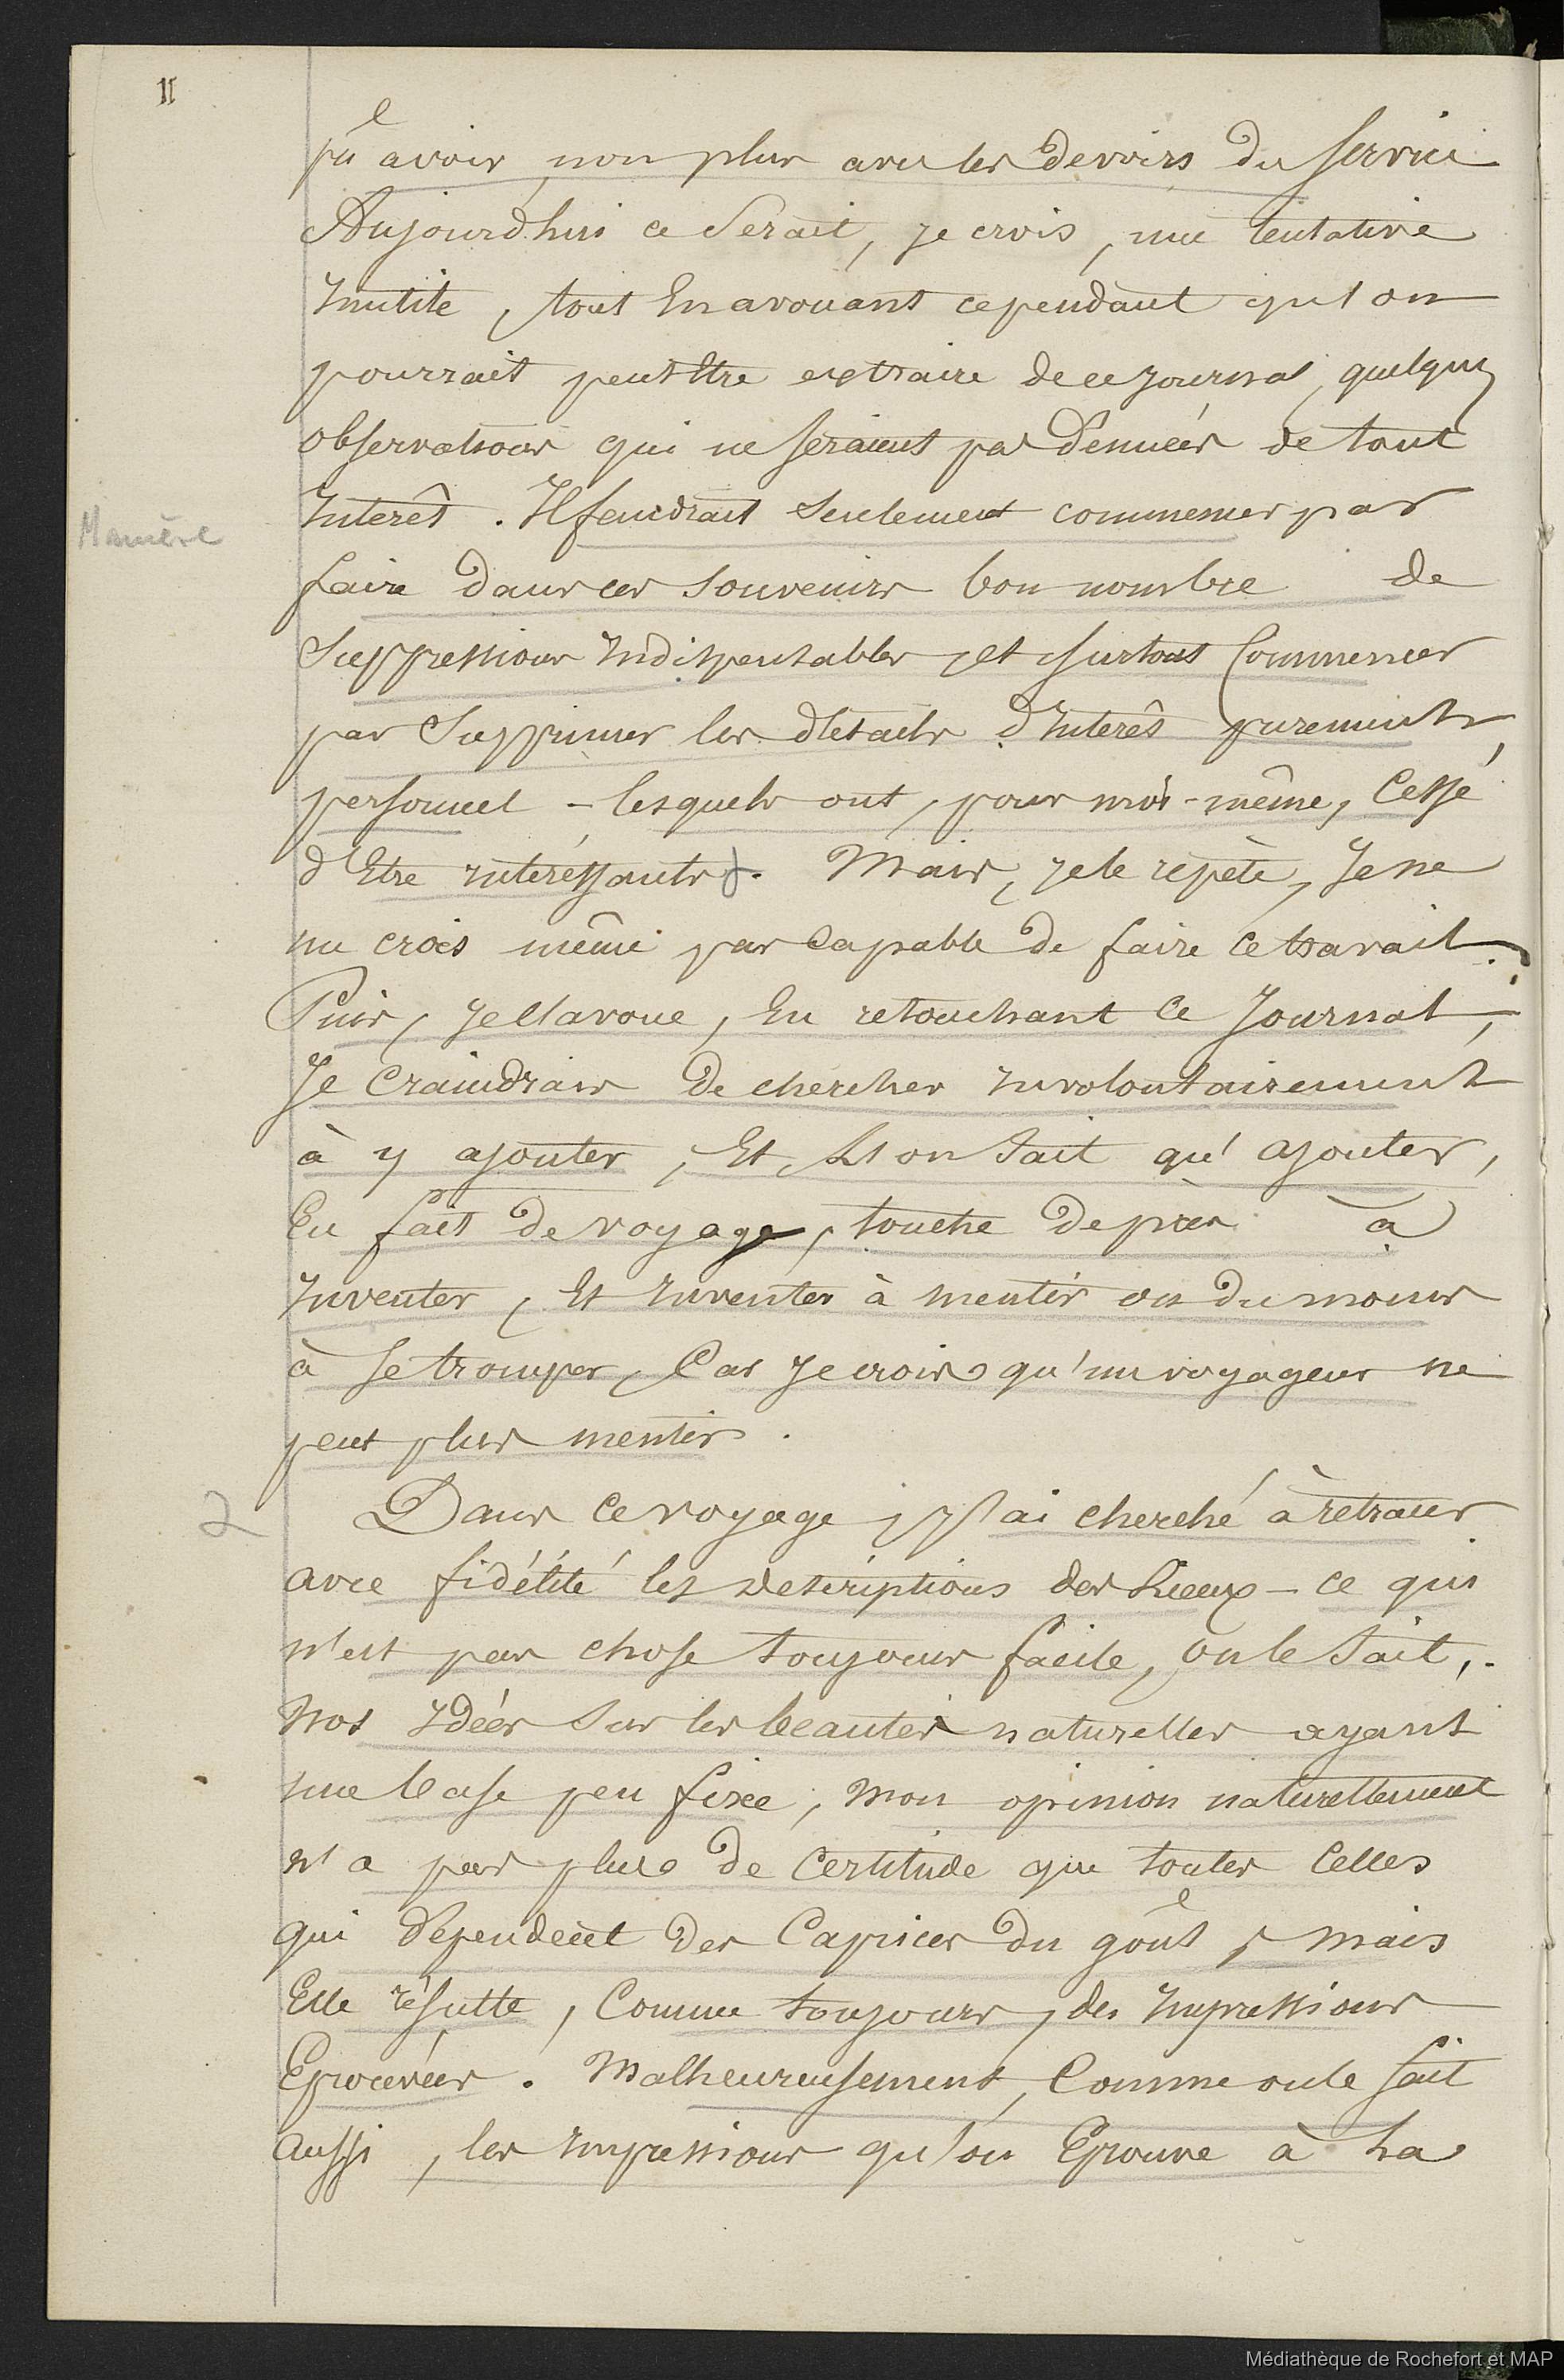 11
pû avoir, non plus avec les devoirs du service
Aujourd'hui ce serait, je crois, une tentative
Inutile, tout En avouant cependant qu'on
pourrait peut Etre extraire de ce journal, quelques
observations qui ne seraient pas dénuées de tout
Interêt. Il faudrait seulement commencer par
Manière
faire dans ces souvenirs bon nombre de
suppressions Indispensables, et surtout Commencer
par supprimer les détails d'Interêt purement,
personnel - lesquels ont, pour moi-même, Cessé
d'Etre intéressants. Mais, je le repète, Je ne
me crois même pas Capable de faire Ce travail.
Puis, je l'avoue, En retouchant Ce Journal,
Je Craindrais de chercher Involontairement
à y ajouter, Et L'on sait qu' ajouter,
En fait de voyage, touche de près à
Inventer, Et Inventer à mentir ou du moins
à se tromper, Car je crois qu'un voyageur ne
peut plus mentir.
2
Dans Ce voyage, J'ai cherché à retracer
avec fidélité les descriptions des Lieux - ce qui
n'est pas chose toujours facile, on le sait,.
nos Idées sur les beautés naturelles ayant
une base peu fixée, mon opinion naturellement
n'a pas plus de Certitude que toutes Celles
qui dépendent des Caprices du goût, mais
Elle résulte, Comme toujours, des Impressions
Eprouvées. Malheureusement, Comme on le sait
aussi, les Impressions qu'on Eprouve à La
Médiathèque de Rochefort et MAP